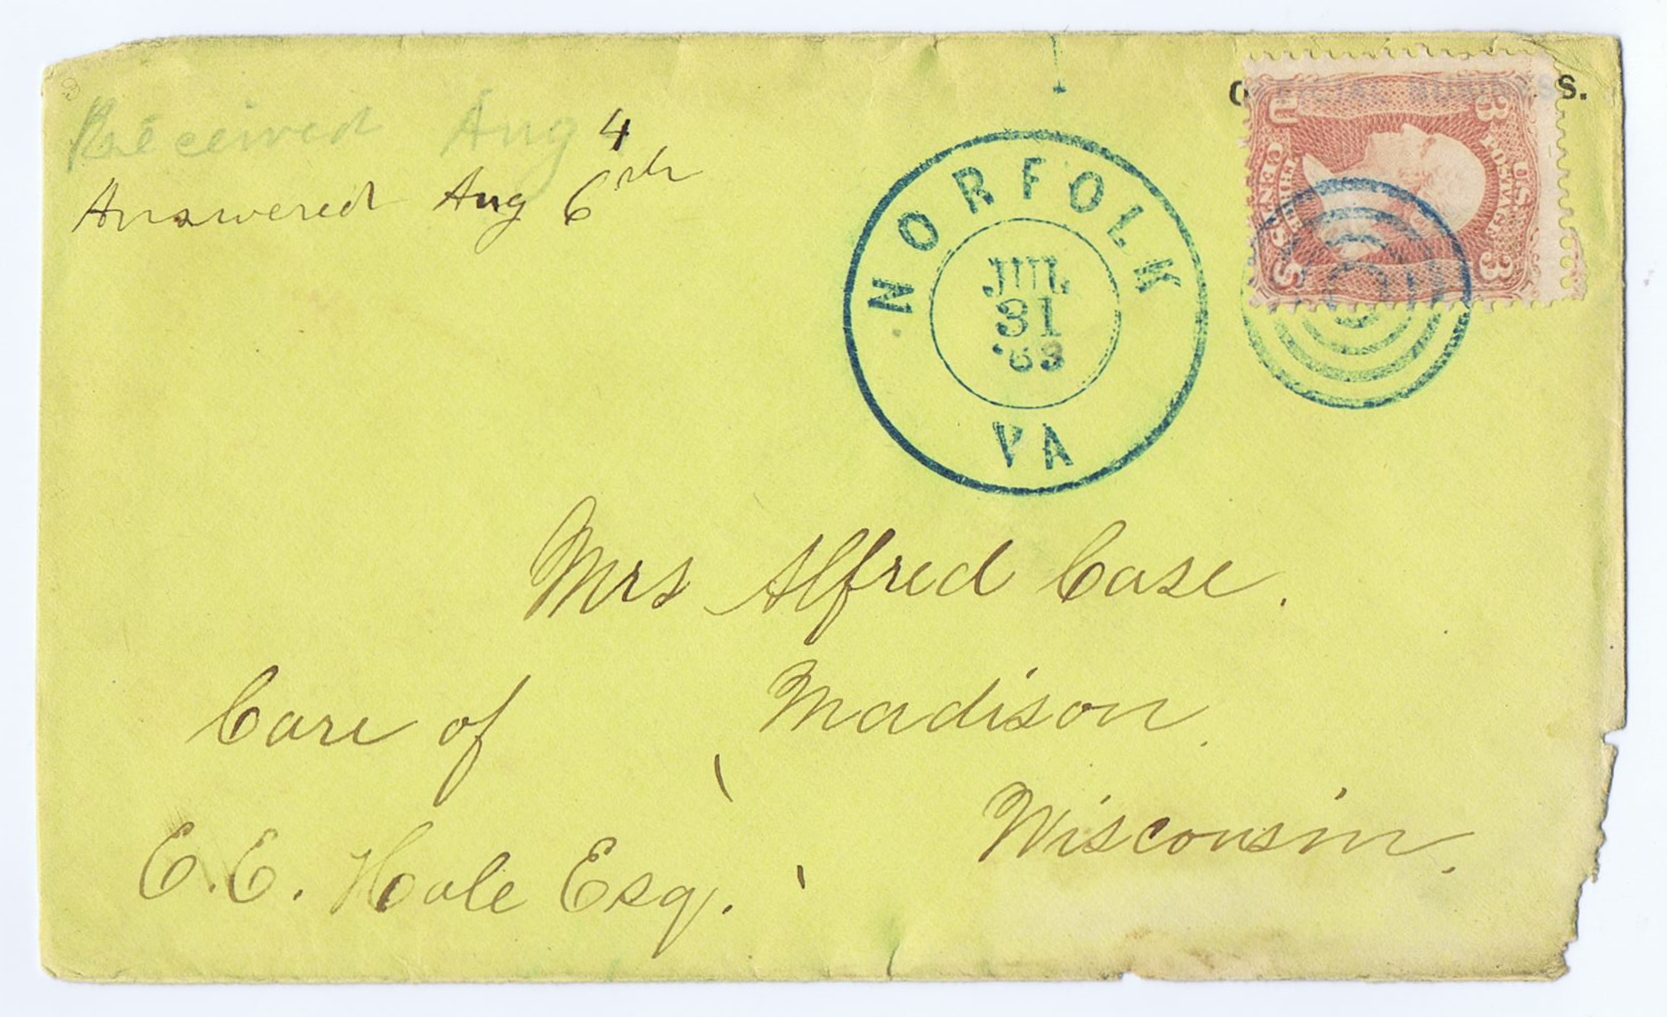 Received Aug 4
Answered Aug 6th
OFFICIAL BUSINESS.
NORFOLK
JUL
31
'63
VA
U 3
S 3
Mrs Alfred Case.
Care of Madison.
Wisconsin.
E.E. Hale Esq.